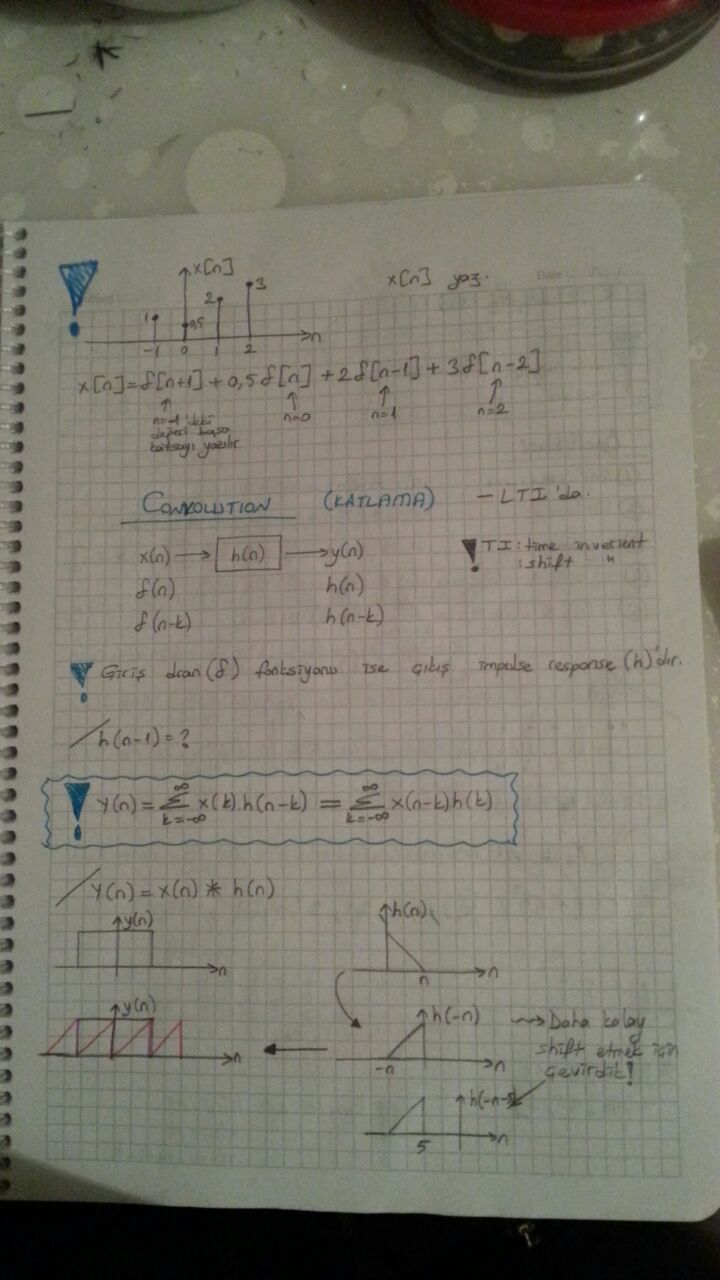 x[n]
x[n] yaz.
Date
1
0,5
2
3
n
-1 0 1 2
x[n]=δ[n+1]+0,5δ[n]+2δ[n-1]+3δ[n-2]
n=-1'deki
değeri başa
katsayı yazılır
n=0
n=1
n=2
CONVOLUTION (KATLAMA) - LTI'da.
x(n) → h(n) → y(n)
TI: time inverient
: shift "
δ(n) h(n)
δ(n-k) h(n-k)
! Giriş dıran(δ) fonksiyonu ise çıkış impulse response (h)'dır.
/ h(n-1)=?
! Y(n)=∞Σk=-∞ x(k).h(n-k) = ∞Σk=-∞ x(n-k)h(k)
/ Y(n)=x(n) * h(n)
y(n)
n
h(n)
n
n
y(n)
n
h(-n)
-n
n
~→ Daha kolay
shift etmek için
çevirdik!
h(-n-5)
5
n